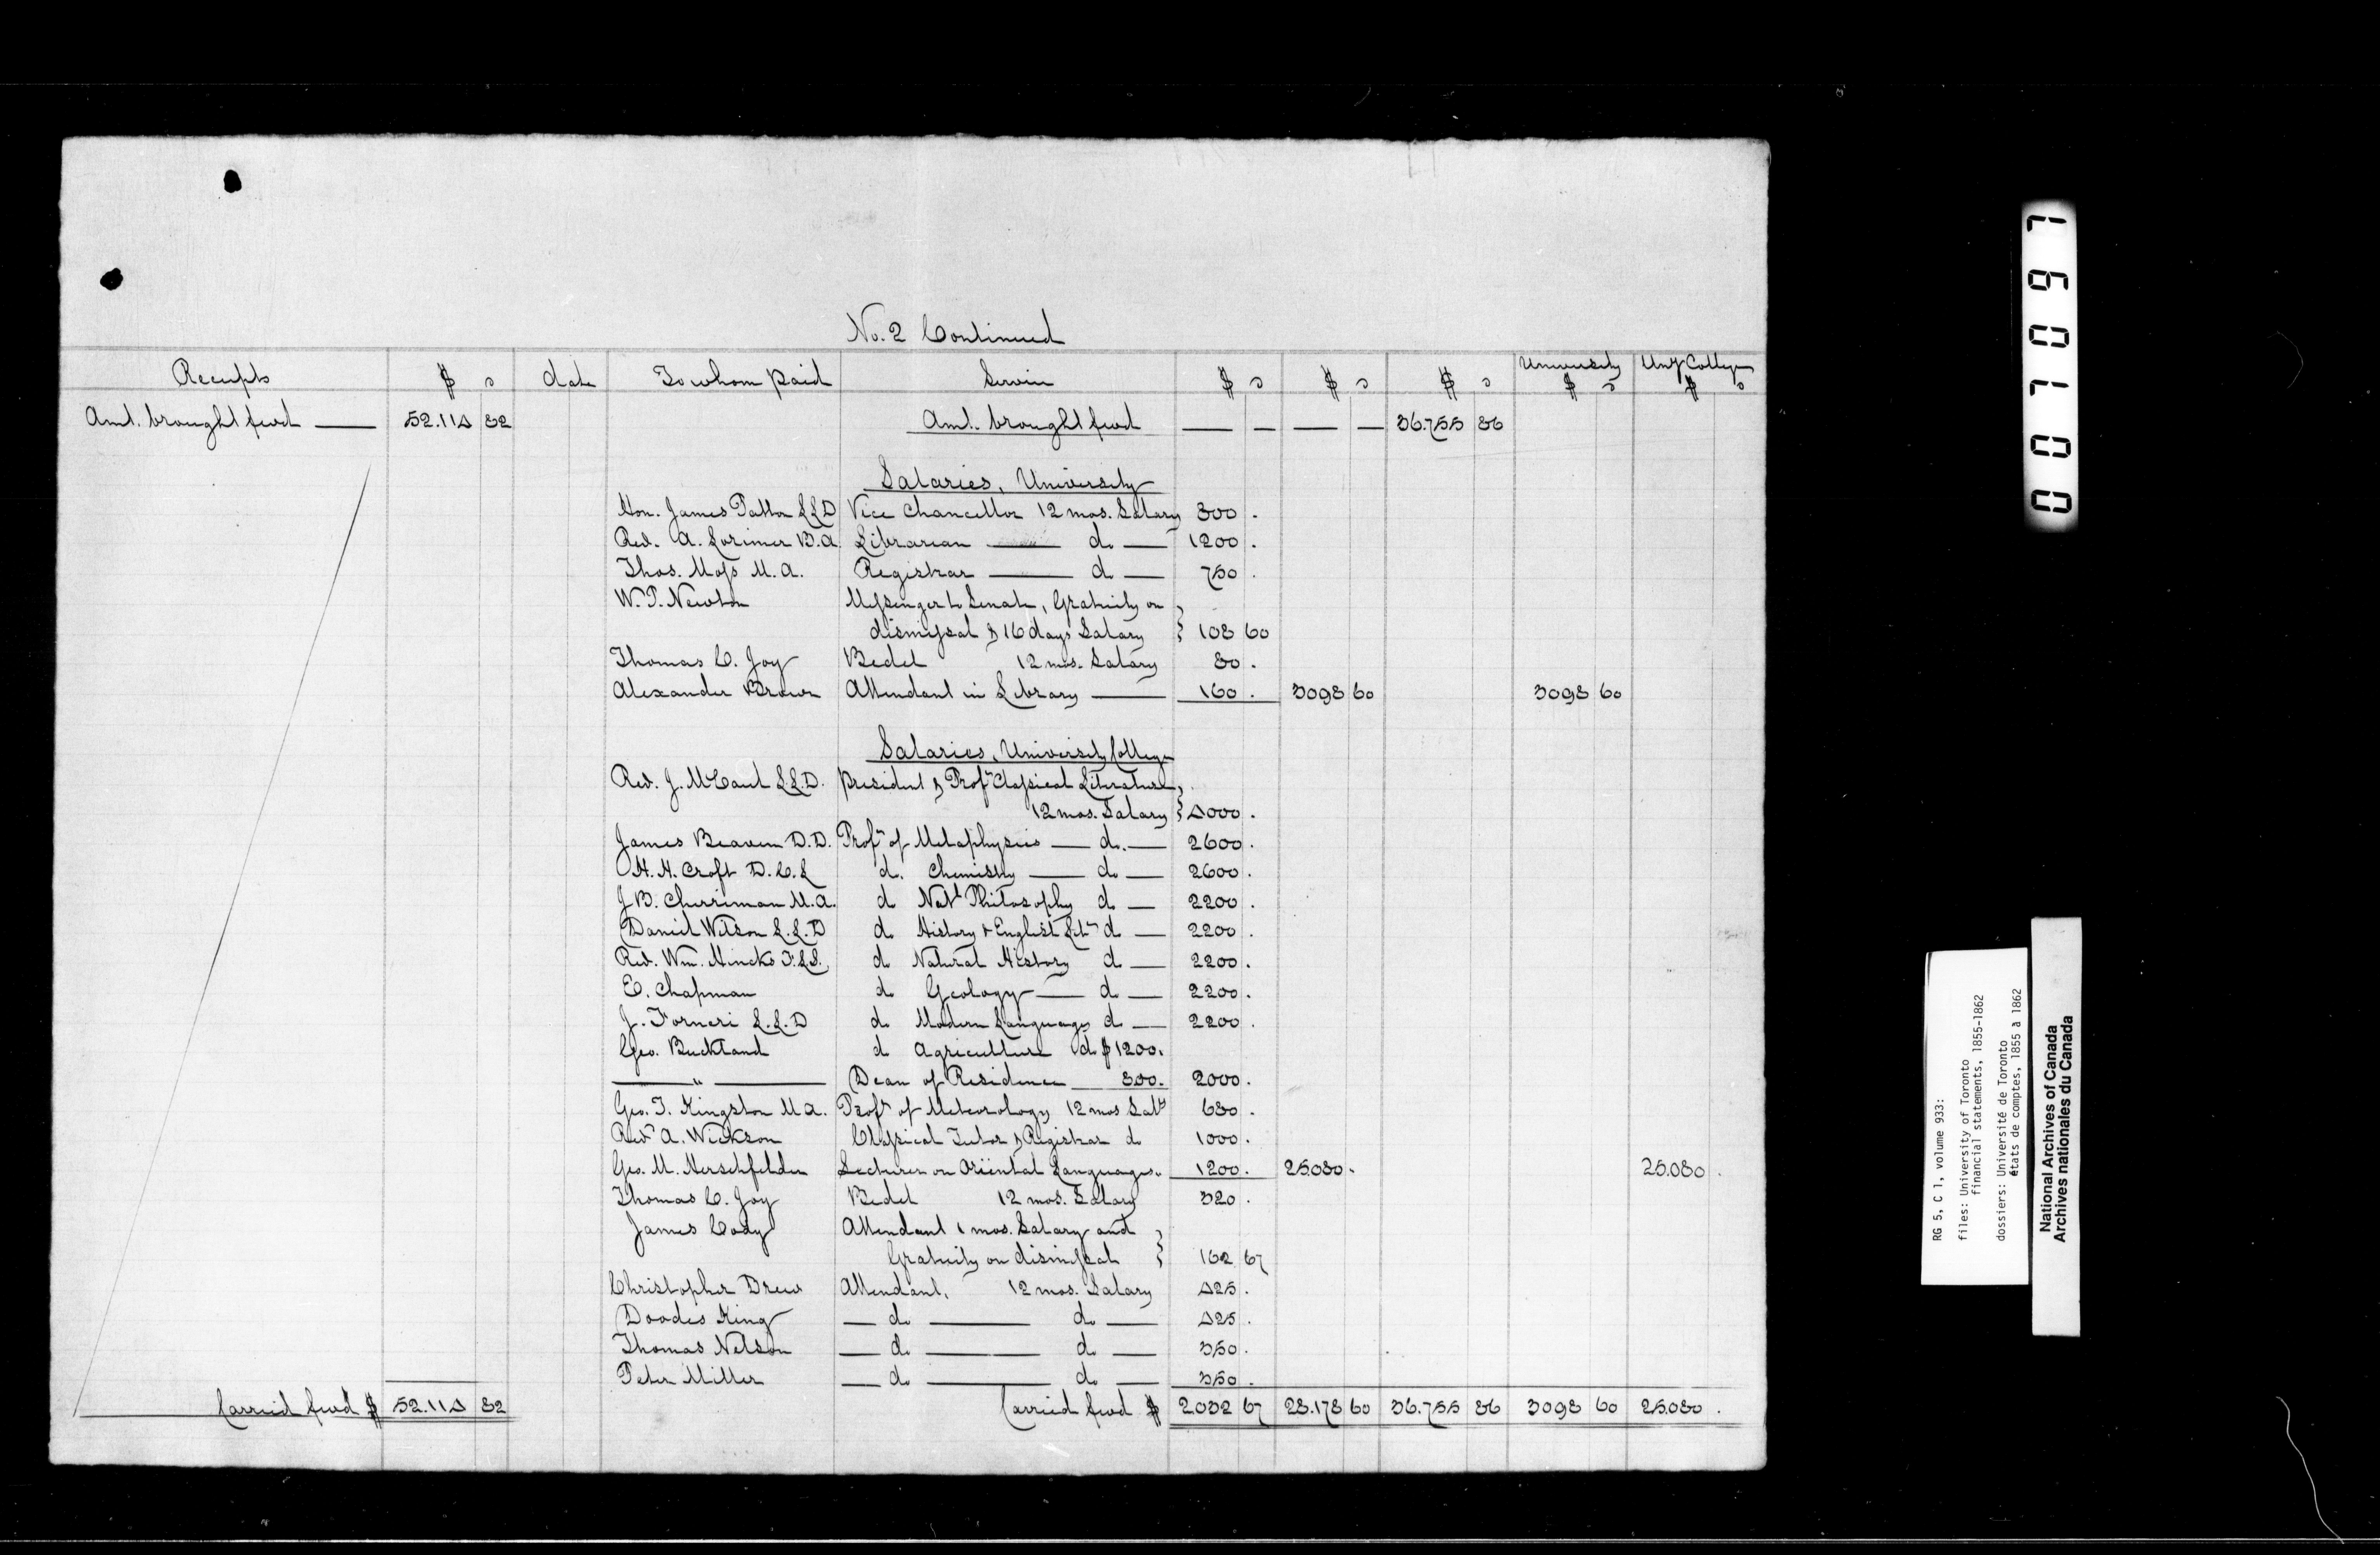 No. 2 Continued
Receipts $ c date To whom paid Service $ c $ c $ c University $ c Uny College $ c
Amt. brought fwd — 52.114 82 Amt. brought fwd — — — — 36.755 86
Salaries, University
Hon. James Patton LLD Vice Chancellor 12 mos. Salary 800 .
Rev. A. Lorimer B.A. Librarian — do — 1200 .
Thos. Moss M.A. Registrar — do — 750 .
W. P. Newton Messenger to Senate, Gratuity on
dismissal & 16 days Salary } 108 60
Thomas C. Joy Bedel 12 mos. Salary 80 .
Alexander Brown Attendant in Library — 160 . 3098 60 3098 60
Salaries, University College
Rev. J. McCaul L.L.D. President & Profr Classical Literature,
12 mos. Salary } 4000 .
James Beaven D.D. Profr of Metaphysics — do. — 2600 .
H. H. Croft D.C.L do. Chemistry — do — 2600 .
J B. Cherriman M.A. do Natl Philosophy do — 2200 .
Daniel Wilson L.L.D do History & English Litre do — 2200 .
Rev. Wm. Hincks F.L.S. do Natural History do — 2200 .
E. Chapman do Geology — do — 2200 .
J. Forneri L.L.D do Modern Languages do — 2200 .
Geo. Buckland do Agriculture do $1200.
— " — Dean of Residence — 800. 2000 .
Geo. T. Kingston M.A. Profr of Meteorology 12 mos Saly 680 .
Revd A. Wickson Classical Tutor & Registrar do 1000 .
Geo. M. Hirschfelder Lecturer on Oriental Languages. 1200 . 25.080 . 25.080 .
Thomas C. Joy Bedel 12 mos. Salary 320 .
James Cody Attendant 1 mos. Salary and
Gratuity on dismissal } 162 67
Christopher Drew Attendant, 12 mos. Salary 425 .
Doodes King — do — do — 425 .
Thomas Nelson — do — do — 350 .
Peter Miller — do — do — 350 .
Carried fwd $ 52.114 82 Carried fwd $ 2032 67 28.178 60 36.755 86 3098 60 25.080 .
007097
RG 5, C 1, volume 933:
files: University of Toronto
financial statements, 1855-1862
dossiers: Université de Toronto
états de comptes, 1855 à 1862
National Archives of Canada
Archives nationales du Canada